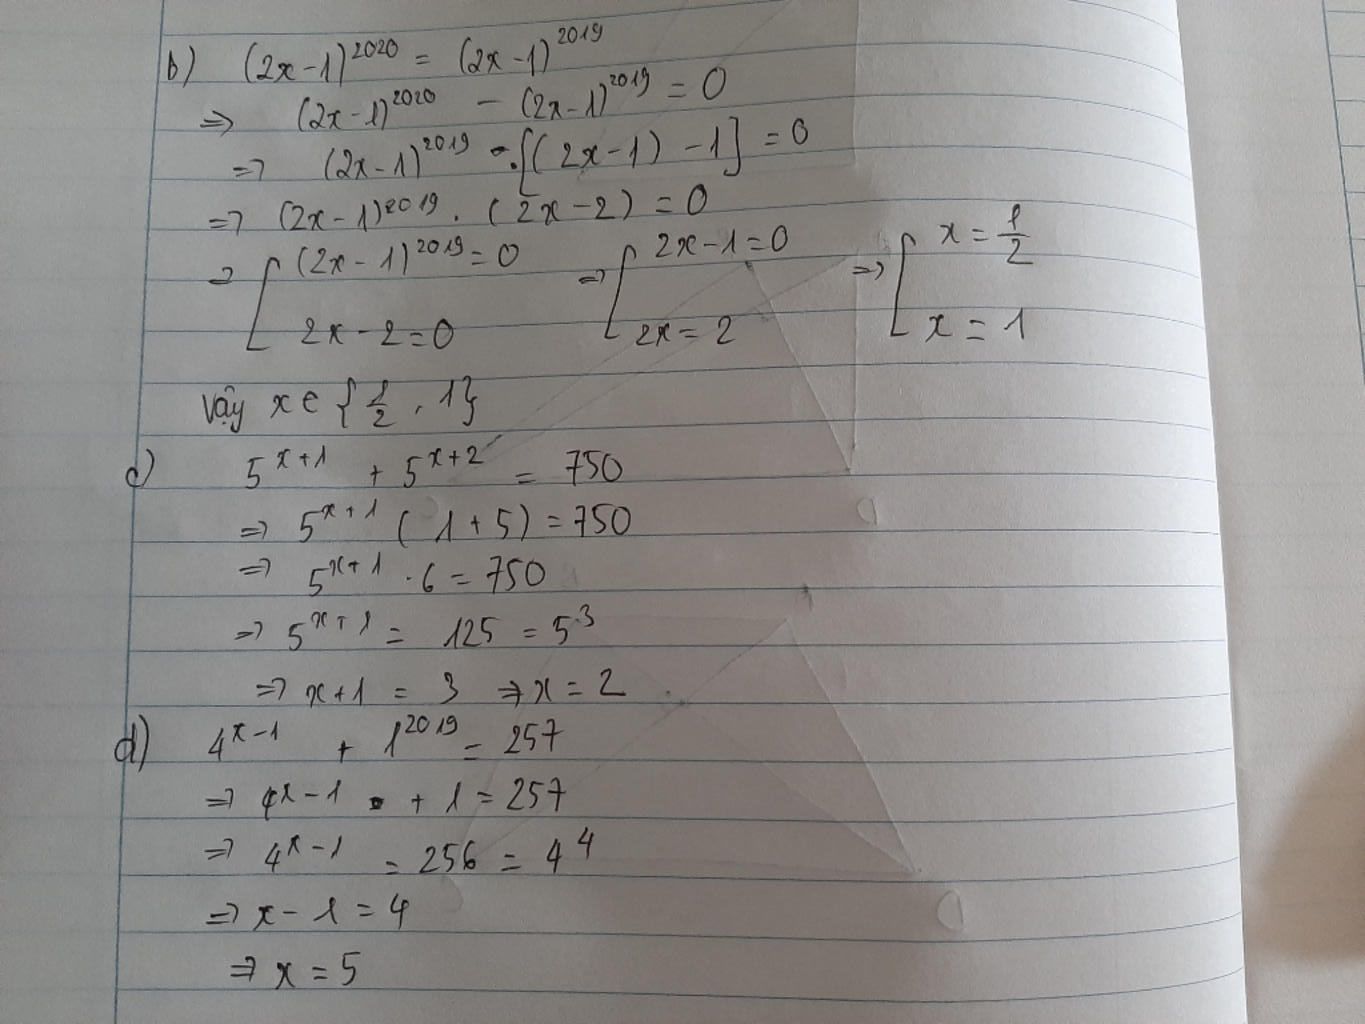 b) (2x-1)^2020 = (2x-1)^2019
=> (2x-1)^2020 - (2x-1)^2019 = 0
=> (2x-1)^2019 . [(2x-1) -1] = 0
=> (2x-1)^2019 . (2x-2) = 0
=> [ (2x-1)^2019 = 0 => [ 2x-1=0 => [ x = 1/2
2x-2=0 2x = 2 x = 1
Vậy x ∈ {1/2, 1}
c) 5^x+1 + 5^x+2 = 750
=> 5^x+1 (1+5) = 750
=> 5^x+1 . 6 = 750
=> 5^x+1 = 125 = 5^3
=> x+1 = 3 => x = 2
d) 4^x-1 + 1^2019 = 257
=> 4^x-1 + 1 = 257
=> 4^x-1 = 256 = 4^4
=> x-1 = 4
=> x = 5